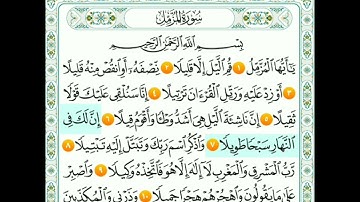 سُورَةُ المُزَّمِّل
بِسْمِ اللَّهِ الرَّحْمَٰنِ الرَّحِيمِ
يَا أَيُّهَا الْمُزَّمِّلُ ١ قُمِ اللَّيْلَ إِلَّا قَلِيلًا ٢ نِصْفَهُ أَوِ انْقُصْ مِنْهُ قَلِيلًا
٣ أَوْ زِدْ عَلَيْهِ وَرَتِّلِ الْقُرْءَانَ تَرْتِيلًا ٤ إِنَّا سَنُلْقِي عَلَيْكَ قَوْلًا
ثَقِيلًا ٥ إِنَّ نَاشِئَةَ اللَّيْلِ هِيَ أَشَدُّ وَطْئًا وَأَقْوَمُ قِيلًا ٦ إِنَّ لَكَ فِي
النَّهَارِ سَبْحًا طَوِيلًا ٧ وَاذْكُرِ اسْمَ رَبِّكَ وَتَبَتَّلْ إِلَيْهِ تَبْتِيلًا ٨
رَبُّ الْمَشْرِقِ وَالْمَغْرِبِ لَا إِلَٰهَ إِلَّا هُوَ فَاتَّخِذْهُ وَكِيلًا ٩ وَاصْبِرْ
عَلَىٰ مَا يَقُولُونَ وَاهْجُرْهُمْ هَجْرًا جَمِيلًا ١٠ وَذَرْنِي وَالْمُكَذِّبِينَ